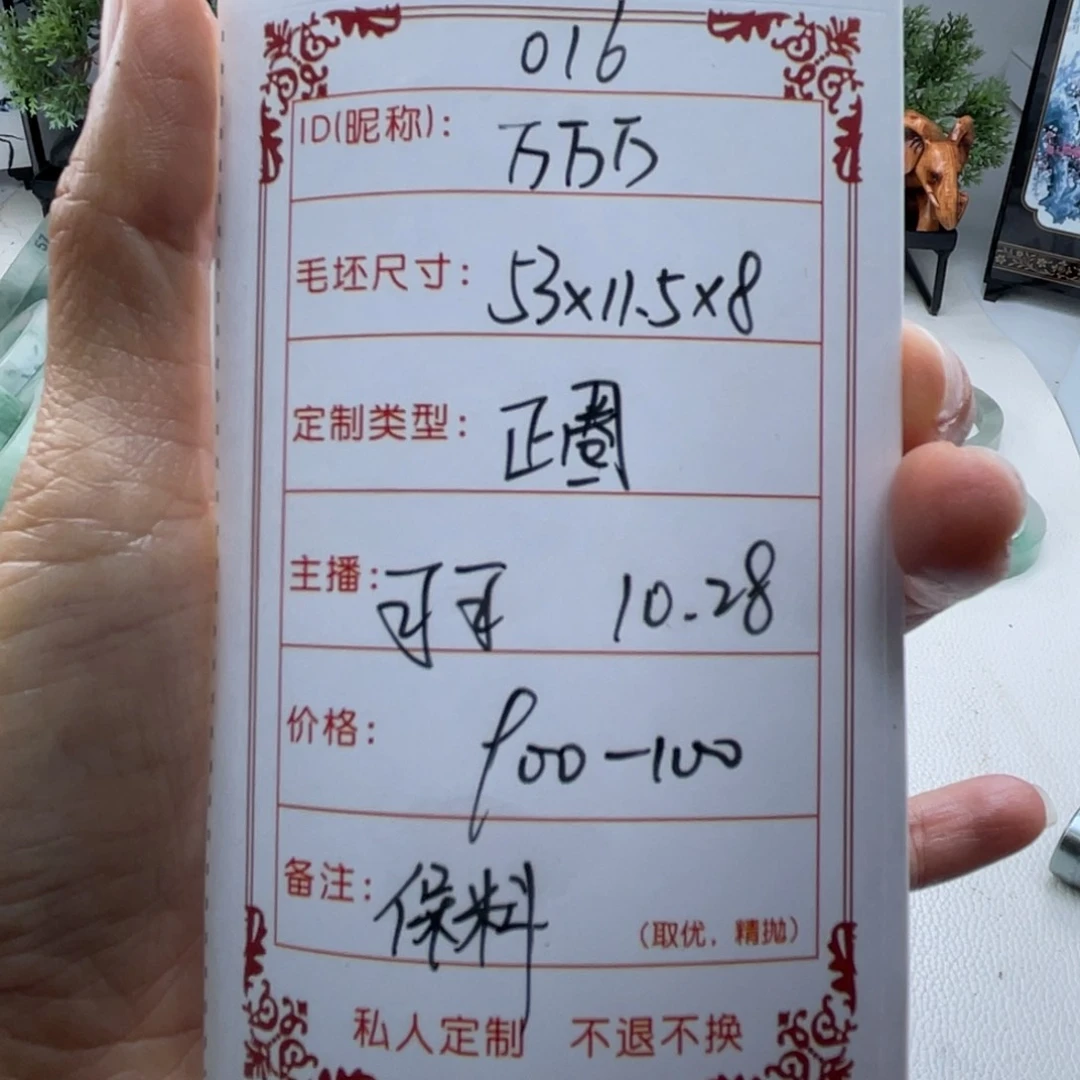 016
ID(昵称): 万万万
毛坯尺寸: 53×11.5×8
定制类型: 正圈
主播: 10.28
价格: 900-100
备注: 保料
(取优, 精抛)
私人定制 不退不换